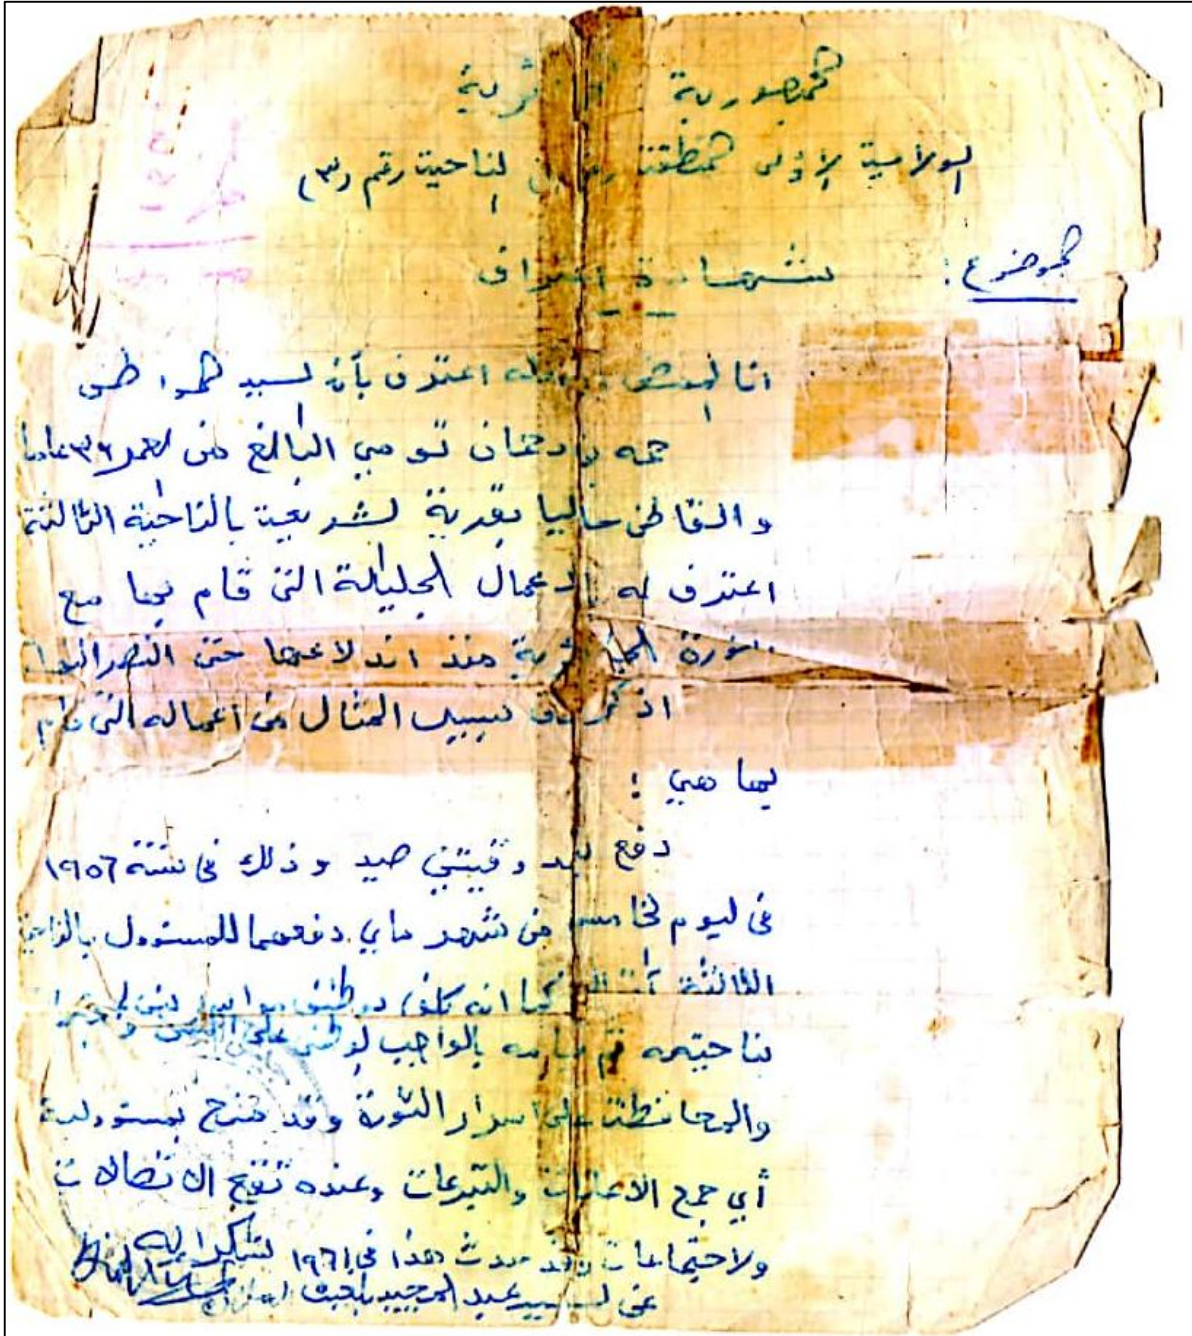 الجمهورية الجزائرية
الولاية الأولى المنطقة الناحية رقم (٣)
الموضوع: شهادة اعتراف
انا الممضي اسفله اعترف بأن السيد المواطن
حمه بن دحمان تومي البالغ من العمر ٣٦ عاما
والقاطن حاليا بقرية الشريعة بالناحية الثالثة
اعترف له بالاعمال الجليلة التي قام بها مع
الثورة الجزائرية منذ اندلاعها حتى النصر
اذكر على سبيل المثال من أعماله التي قام
بها هي :
دفع صيد وذلك في سنة ١٩٥٦
في اليوم الخامس من شهر ماي دفعهما للمسئول بالناحية
الثالثة كما انه كلف
بناحيته قيامه بالواجب الوطني على
والمحافظة على اسرار الثورة وقد منح بمسئولية
أي جمع الاعانات والتبرعات وعنده تقع الاتصالات
والاجتماعات وقد حدث هذا في ١٩٦١
عن السيد عبد المجيد